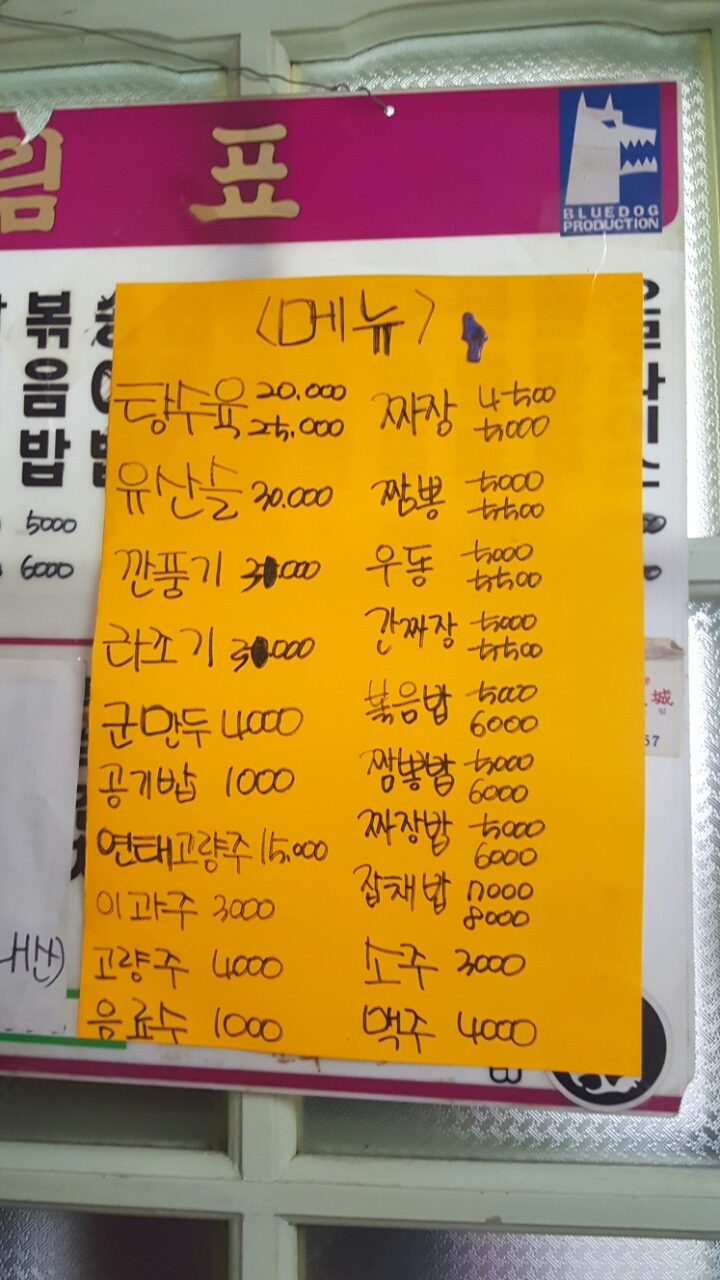 림 표
BLUEDOG
PRODUCTION
볶음밥
5000
6000
<메뉴>
탕수육 20.000
25.000
유산슬 30.000
깐풍기 30.000
라조기 30.000
군만두 4000
공기밥 1000
연태고량주 15.000
이과주 3000
고량주 4000
음료수 1000
짜장 4500
5000
짬뽕 5000
5500
우동 5000
5500
간짜장 5000
5500
볶음밥 5000
6000
짬뽕밥 5000
6000
짜장밥 5000
6000
잡채밥 7000
8000
소주 3000
맥주 4000
城
57